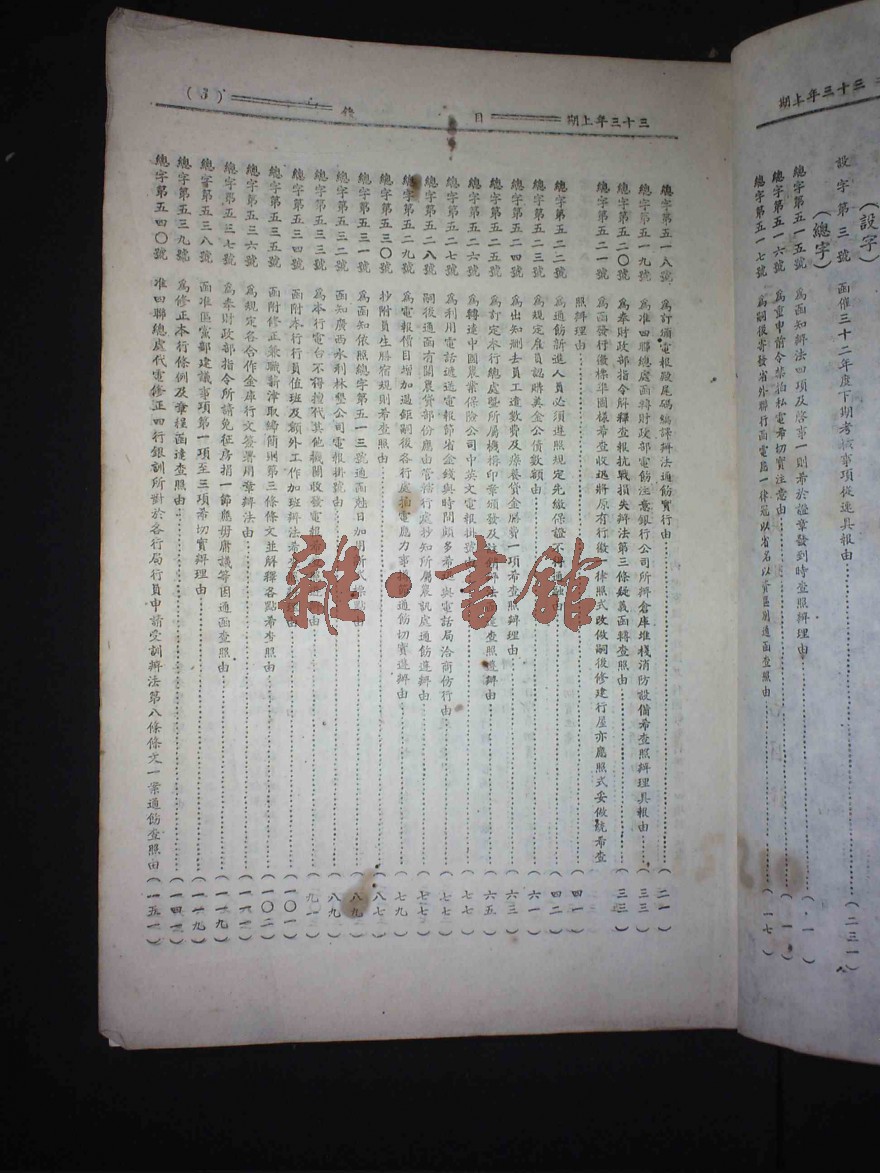 三十三年上期
設字第三號 函催三十二年度下期考核事項從速具報由……(二三一)
(總字)
總字第五一五號 爲函知辦法四項及啓事一則希於證章發到時查照辦理由……(一)
總字第五一六號 爲重申前令禁拍私電希切實注意由……(一)
總字第五一七號 爲嗣後寄發省外聯行函電應一律冠以省名以資區別通函查照由……(一七)
三十三年上期 目 錄 (3)
總字第五一八號 爲訂補電報殿尾碼編譯辦法通飭實行由……(二一)
總字第五一九號 爲准四聯總處函轉財政部電飭注意銀行公司所辦倉庫堆棧消防設備希查照辦理具報由……(三三)
總字第五二〇號 爲奉財政部指令解釋查報抗戰損失辦法第三條疑義函轉查照由……(三三)
總字第五二一號 爲函發行徽標準圖樣希查收迅將原有行徽一律照式改做嗣後修建行屋亦應照式妥做統希查
照辦理由……(四一)
總字第五二二號 爲通飭新進人員必須遵照規定先繳保證不得融由……(四二)
總字第五二三號 爲規定雇員認購美金公債數額由……(六一)
總字第五二四號 爲出知刪去員工遣散費及療養貸金膳費一項希查照辦理由……(六三)
總字第五二五號 爲訂定本行總處暨所屬機構印章頒發及辦法查照遵辦由……(六五)
總字第五二六號 爲轉達中國農業保險公司中英文電報掛號……(七七)
總字第五二七號 爲利用電話遞送電報節省金錢與時間頗多希與電話局洽商仿行由……(七七)
總字第五二八號 嗣後通函有關農貸部份應由管轄行處抄知所屬農訊處通飭遵辦由……(七七)
總字第五二九號 爲電報價目增加過鉅嗣後各行處拍電應力事通飭切實遵辦由……(七九)
總字第五三〇號 抄附員生膳宿規則希查照由……(八七)
總字第五三一號 爲函知依照總字第五一三號通函魁日加用由……(八九)
總字第五三二號 函知廣西水利林墾公司電報掛號由……(八九)
總字第五三三號 爲本行電台不得擅代其他機關收發電報希由……(九一)
總字第五三四號 函附本行行員值班及額外工作加班辦法希由……(一〇一)
總字第五三五號 函附修正兼職薪津取締簡則第三條條文並解釋各點希查照由……(一〇二)
總字第五三六號 爲規定各合作金庫行文簽署用章辦法由……
總字第五三七號 爲奉財政部指令所請免征房捐一節應毋庸議等因通函查照由……(一一九)
總字第五三八號 函准區黨部建議事項第一項至三項希切實辦理由……(一一九)
總字第五三九號 爲修正本行條例及章程函達查照由……(一四一)
總字第五四〇號 准四聯總處代電修正四行銀訓所對於各行局行員申請受訓辦法第八條條文一案通飭查照由(一五一)
雜·書館